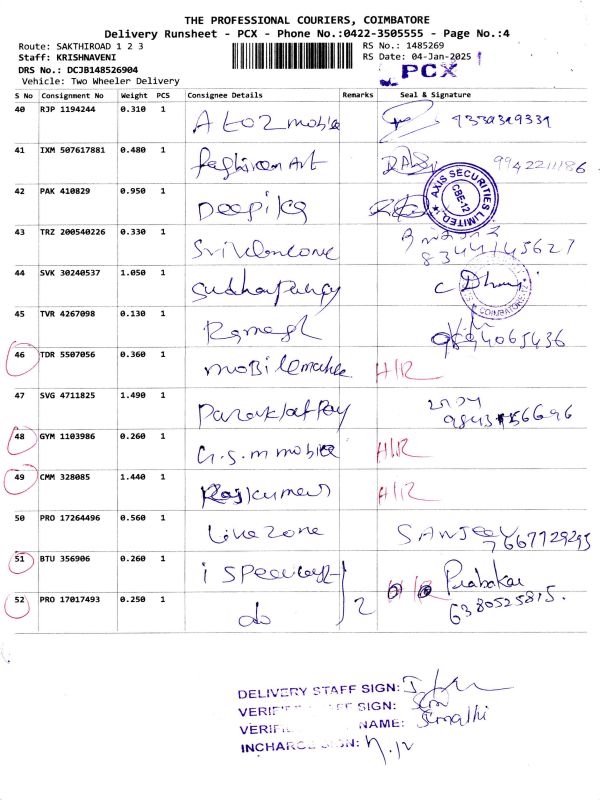 THE PROFESSIONAL COURIERS, COIMBATORE
Delivery Runsheet - PCX - Phone No.:0422-3505555 - Page No.:4
Route: SAKTHIROAD 1 2 3
RS No.: 1485269
Staff: KRISHNAVENI
RS Date: 04-Jan-2025
DRS No.: DCJB148526904
PCX
Vehicle: Two Wheeler Delivery
S No Consignment No Weight PCS Consignee Details Remarks Seal & Signature
40 RJP 1194244 0.310 1 A to Z mobile
41 IXM 507617881 0.480 1 Art 9942211186
42 PAK 410829 0.950 1 Deepika
AXIS SECURITIES LIMITED
CBE-12
43 TRZ 200540226 0.330 1 8344145627
44 SVK 30240537 1.050 1
COIMBATORE
45 TVR 4267098 0.130 1 Ramesh
46 TDR 5507056 0.360 1 H/R
47 SVG 4711825 1.490 1
48 GYM 1103986 0.260 1 G.S.m mobile H/R
49 CMM 328085 1.440 1 Rajkumar H/R
50 PRO 17264496 0.560 1 Live Zone SANJEEV 7667729295
51 BTU 356906 0.260 1 Prabakar
52 PRO 17017493 0.250 1 do 2 6380525815.
DELIVERY STAFF SIGN:
SIGN:
NAME: Sumathi
INCHARGE SIGN: